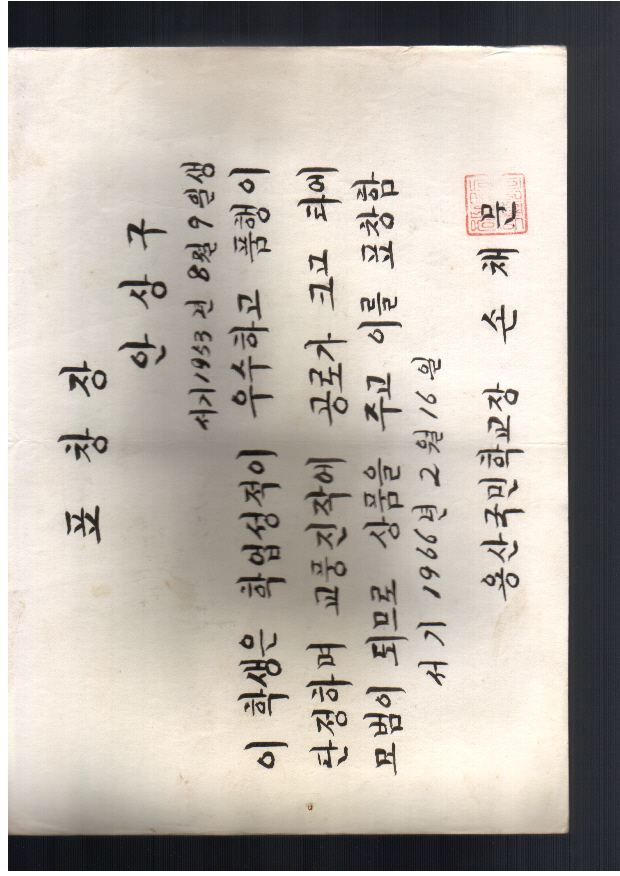 표 창 장
안 상 구
서기 1953 년 8월 9 일생
이 학생은 학업성적이 우수하고 품행이
단정하며 교풍진작에 공로가 크고 타에
모범이 되므로 상품을 주고 이를 표창함
서 기 1966년 2월 16일
용산국민학교장 손 채 문